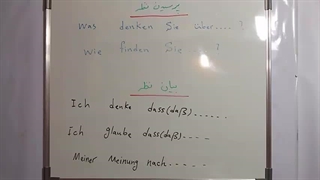 پرسیدن نظر
Was denken Sie über....?
Wie finden Sie ?
بیان نظر
Ich denke dass(daß).....
Ich glaube dass(daß)....
Meiner Meinung nach.....